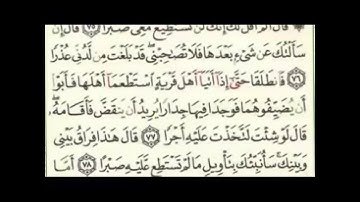 قَالَ أَلَمْ أَقُل لَّكَ إِنَّكَ لَن تَسْتَطِيعَ مَعِىَ صَبْرًا ۝٧٥ قَالَ إِن
سَأَلْتُكَ عَن شَىْءٍ بَعْدَهَا فَلَا تُصَٰحِبْنِى قَدْ بَلَغْتَ مِن لَّدُنِّى عُذْرًا
۝٧٦ فَٱنطَلَقَا حَتَّىٰٓ إِذَآ أَتَيَآ أَهْلَ قَرْيَةٍ ٱسْتَطْعَمَآ أَهْلَهَا فَأَبَوْا۟
أَن يُضَيِّفُوهُمَا فَوَجَدَا فِيهَا جِدَارًا يُرِيدُ أَن يَنقَضَّ فَأَقَامَهُۥ
قَالَ لَوْ شِئْتَ لَتَّخَذْتَ عَلَيْهِ أَجْرًا ۝٧٧ قَالَ هَٰذَا فِرَاقُ بَيْنِى
وَبَيْنِكَ سَأُنَبِّئُكَ بِتَأْوِيلِ مَا لَمْ تَسْتَطِع عَّلَيْهِ صَبْرًا ۝٧٨ أَمَّا